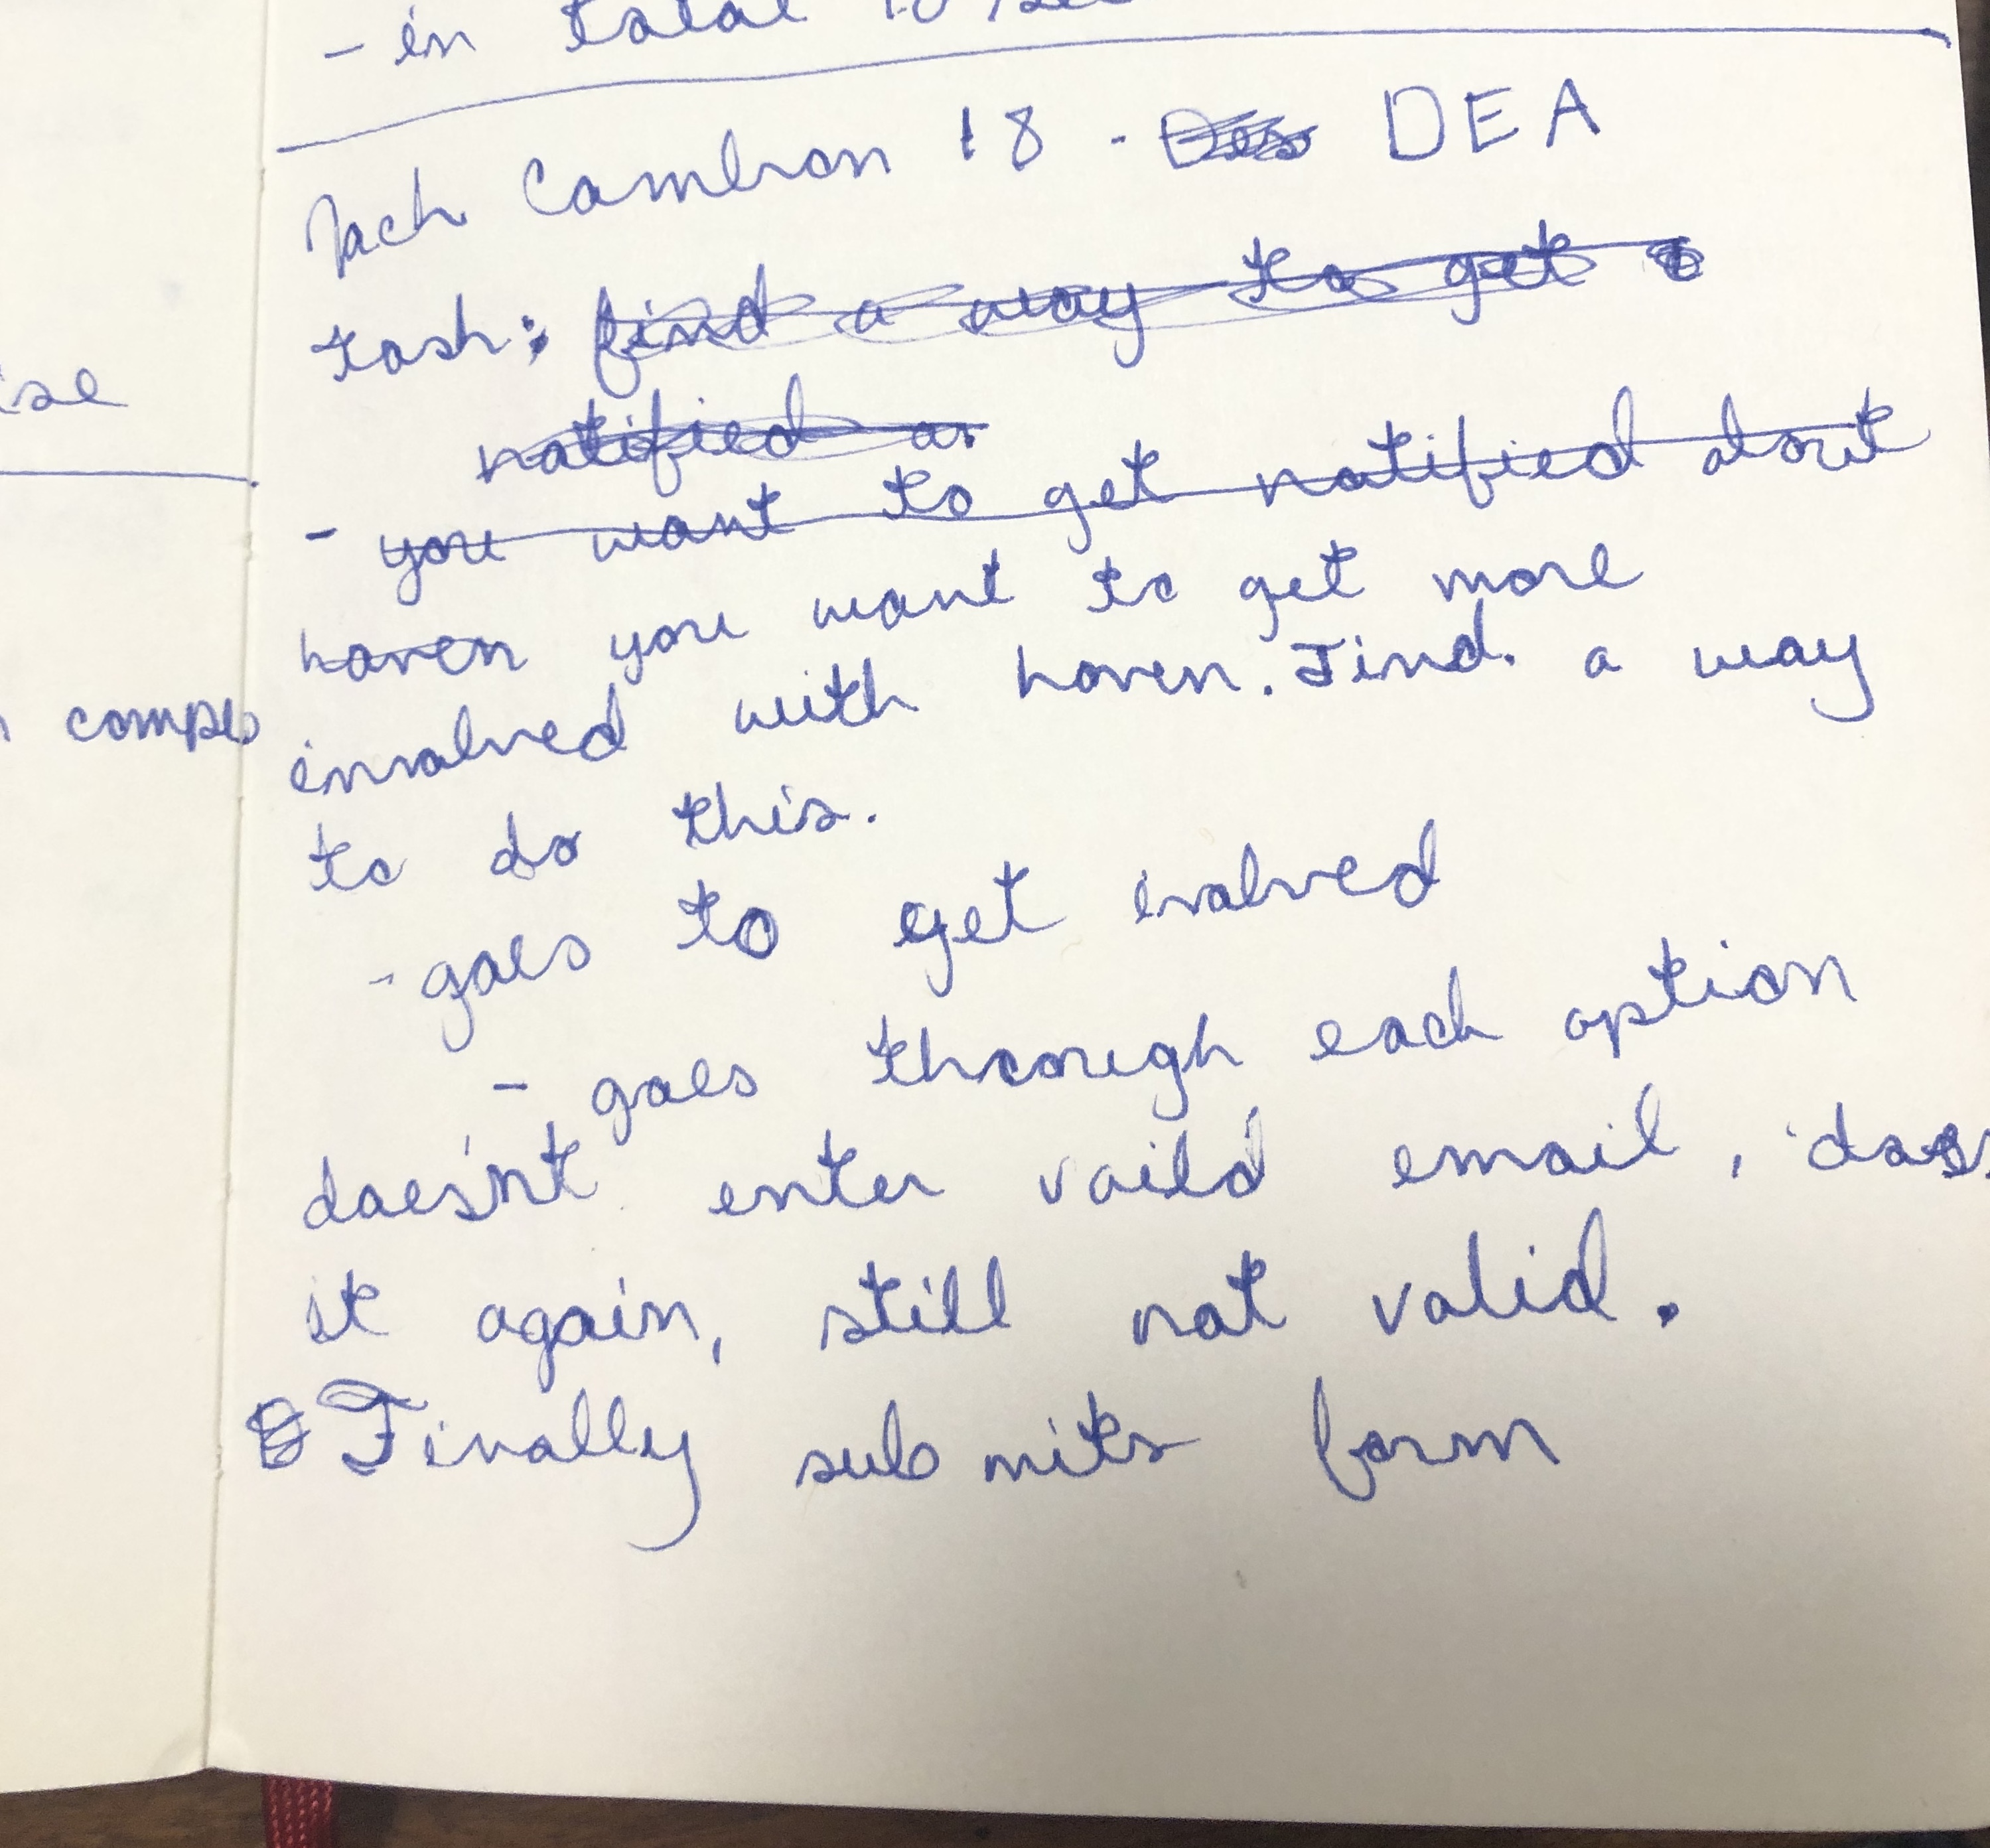 - in total 10
ise
compe
Jach Cambron 18 - DEA
task: find a way to get
notified
- you want to get notified about
haven you want to get more
involved with haven. Find a way
to do this.
- goes to get ivolved
- goes through each option
doesn't enter vaild email, does
it again, still not valid.
Finally submits form